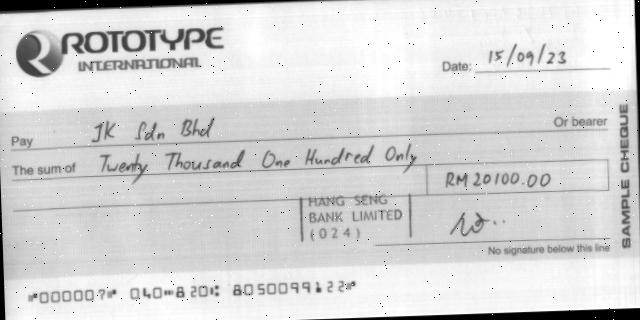 ROTOTYPE
INTERNATIONAL
Date: 15/09/23
Pay JK Sdn Bhd Or bearer
The sum of Twenty Thousand One Hundred Only
RM20100.00
HANG SENG
BANK LIMITED
(024)
No signature below this line
SAMPLE CHEQUE
⑈000007⑈ 040⑉820⑆ 8050099122⑈